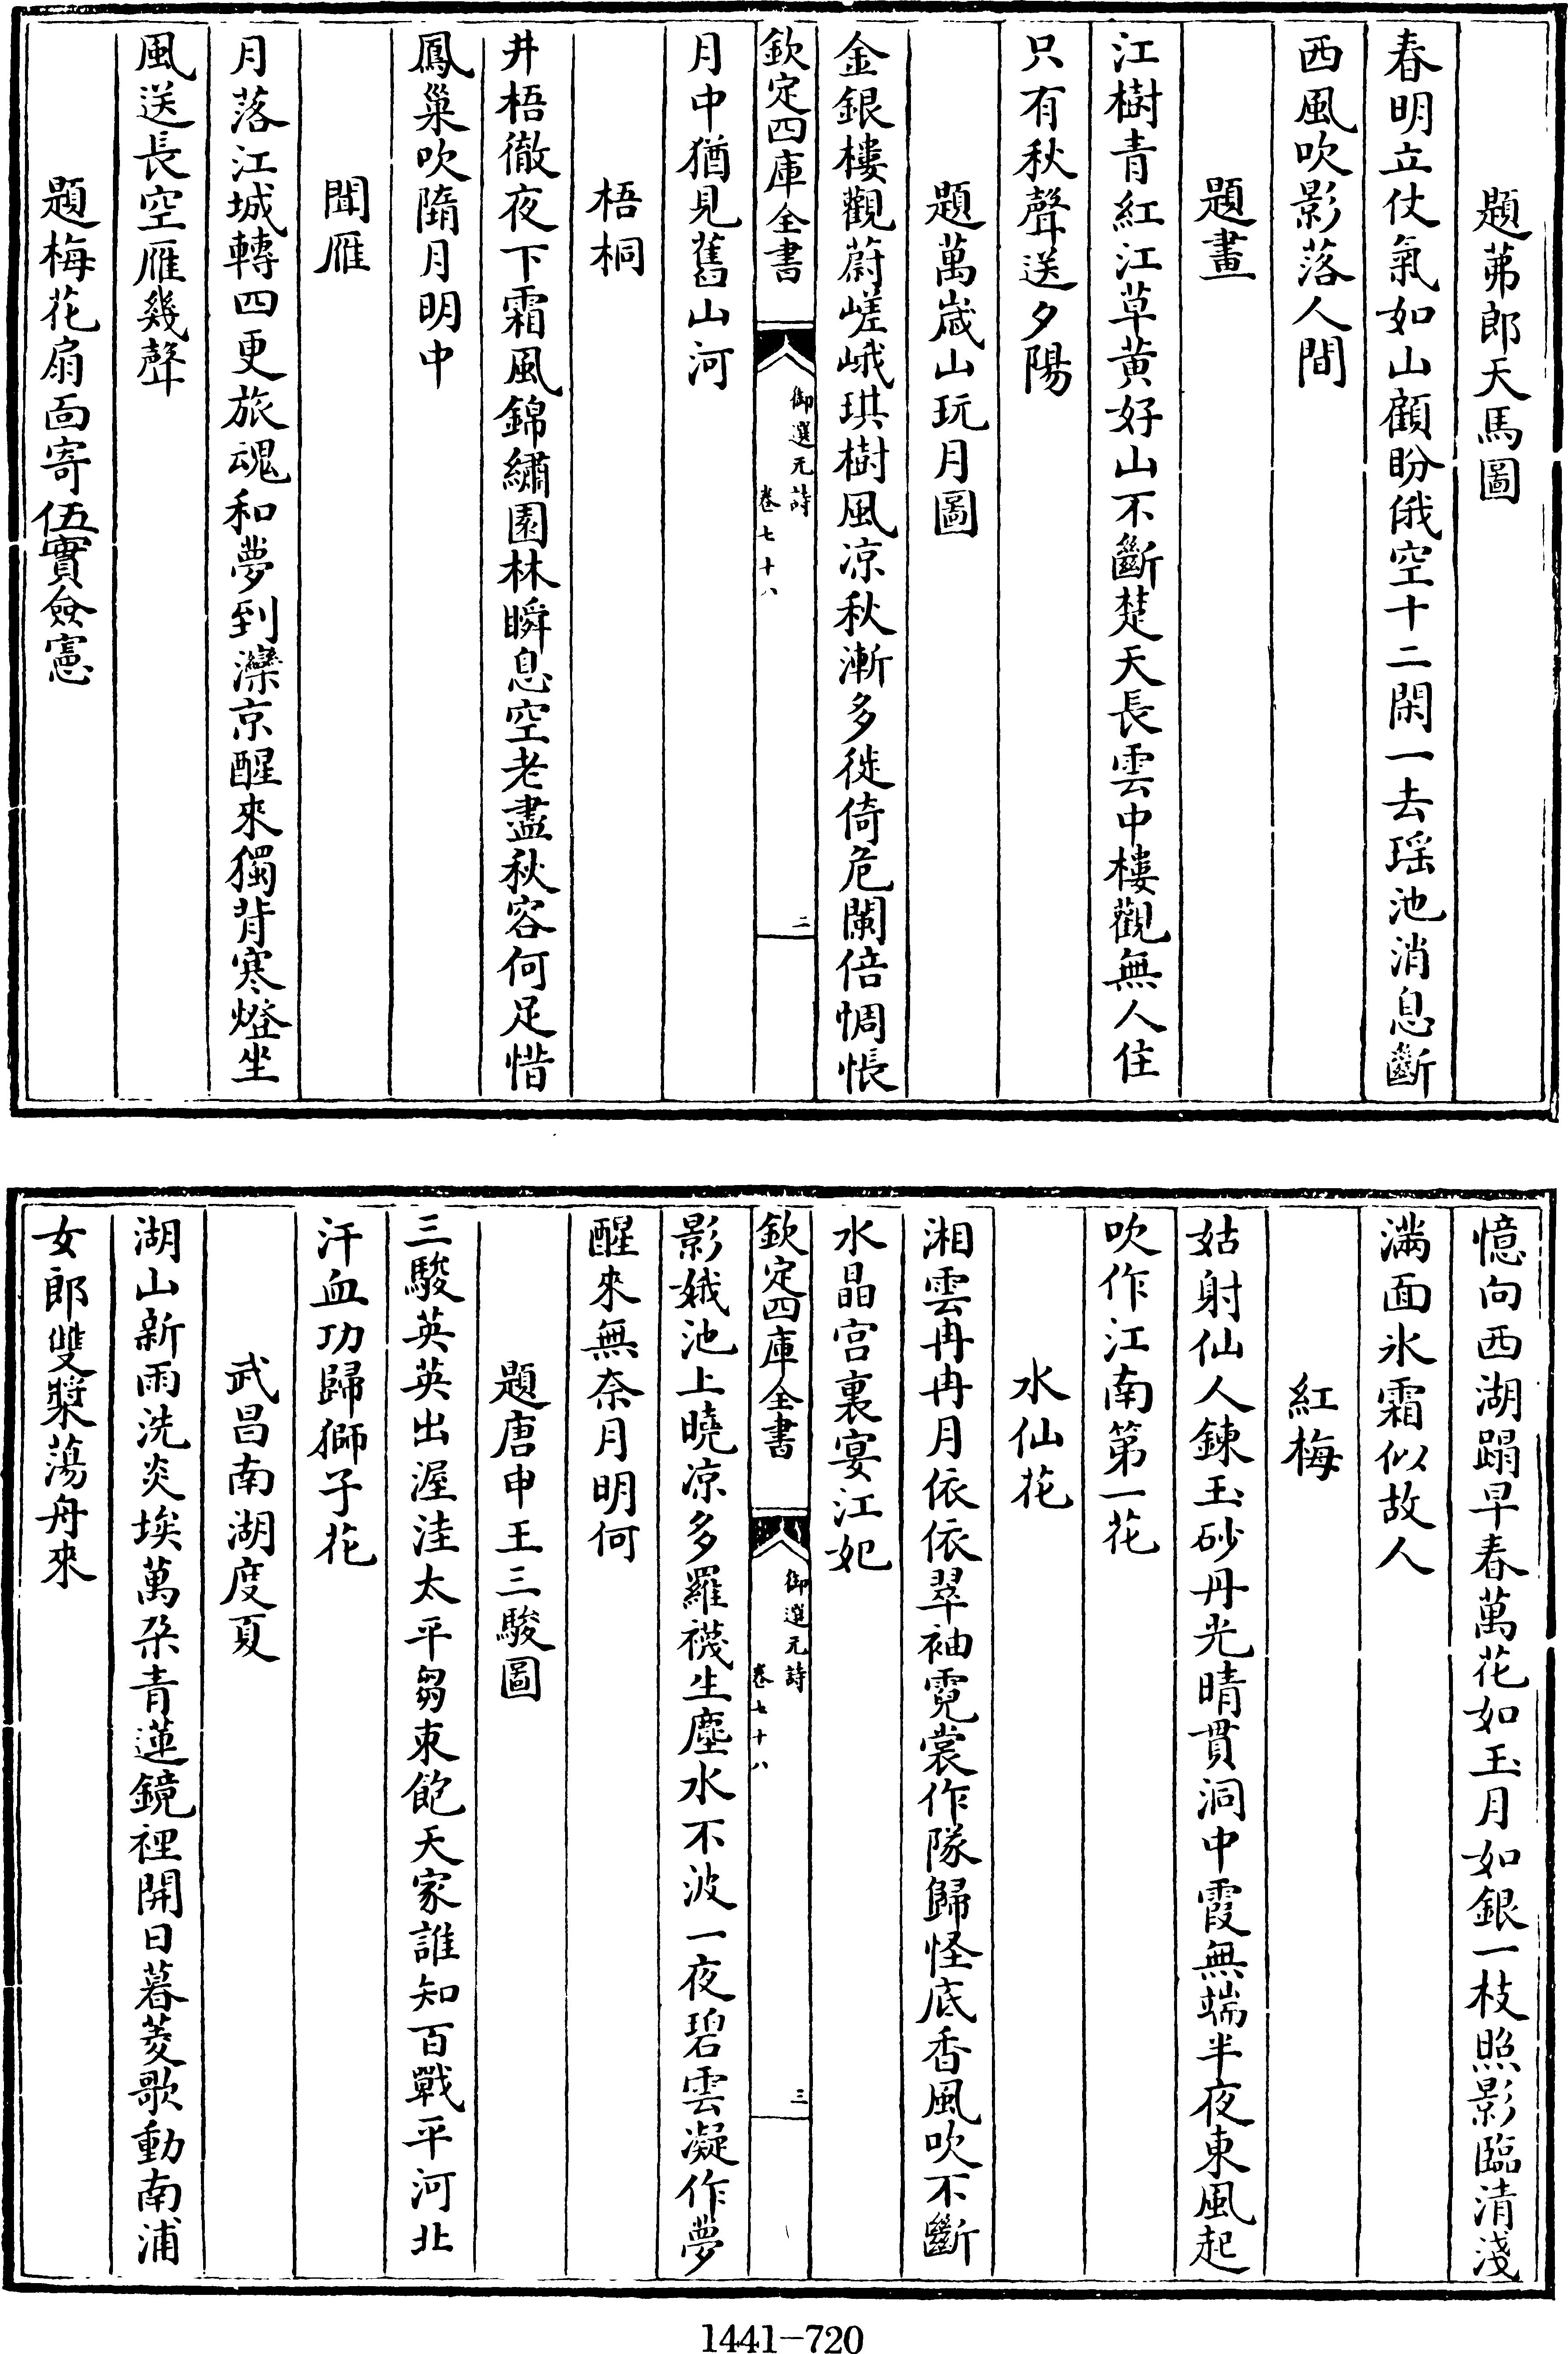 題茀郎天馬圖
春明立仗氣如山顧盼俄空十二閑一去瑶池消息斷
西風吹影落人間
題畫
江樹青紅江草黄好山不斷楚天長雲中樓觀無人住
只有秋聲送夕陽
題萬歲山玩月圖
金銀樓觀蔚嵯峨琪樹風凉秋漸多徙倚危闌倍惆悵
欽定四庫全書
御選元詩
卷七十八
二
月中猶見舊山河
梧桐
井梧徹夜下霜風錦繡園林瞬息空老盡秋容何足惜
鳳巢吹隋月明中
聞雁
月落江城轉四更旅魂和夢到灤京醒來獨背寒燈坐
風送長空雁幾聲
題梅花扇面寄伍實僉憲
憶向西湖蹋早春萬花如玉月如銀一枝照影臨清淺
滿面氷霜似故人
紅梅
姑射仙人鍊玉砂丹光晴貫洞中霞無端半夜東風起
吹作江南第一花
水仙花
湘雲冉冉月依依翠袖霓裳作隊歸怪底香風吹不斷
水晶宫裏宴江妃
欽定四庫全書
御選元詩
卷七十八
三
影娥池上曉凉多羅襪生塵水不波一夜碧雲凝作夢
醒來無奈月明何
題唐申王三駿圖
三駿英英出渥洼太平芻束飽天家誰知百戰平河北
汗血功歸獅子花
武昌南湖度夏
湖山新雨洗炎埃萬朶青蓮鏡裡開日暮菱歌動南浦
女郎雙槳蕩舟來
1441-720